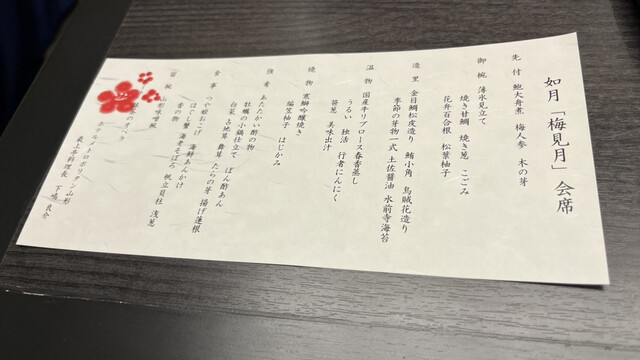 如月「梅見月」会席
先付 鮑大舟煮 梅人参 木の芽
御椀 薄氷見立て
焼き甘鯛 焼き葱 こごみ
花弁百合根 松葉柚子
造里 金目鯛松皮造り 鮪小角 烏賊花造り
季節の芽物一式 土佐醤油 水前寺海苔
温物 国産牛リブロース春香蒸し
うるい 独活 行者にんにく
美味出汁
焼物 寒鰤吟醸焼き
はじかみ
強肴 あたたかい酢の物
牡蠣の小鍋仕立て ぽん酢あん
白菜 占地茸 舞茸 たらの芽 揚げ蓮根
食事 つや姫おこげ 海鮮あんかけ
ほぐし蟹 海老そぼろ 帆立貝柱 浅葱
香の物
留椀 山形味噌椀
ホテルメトロポリタン山形
最上亭料理長 下嶋 良介